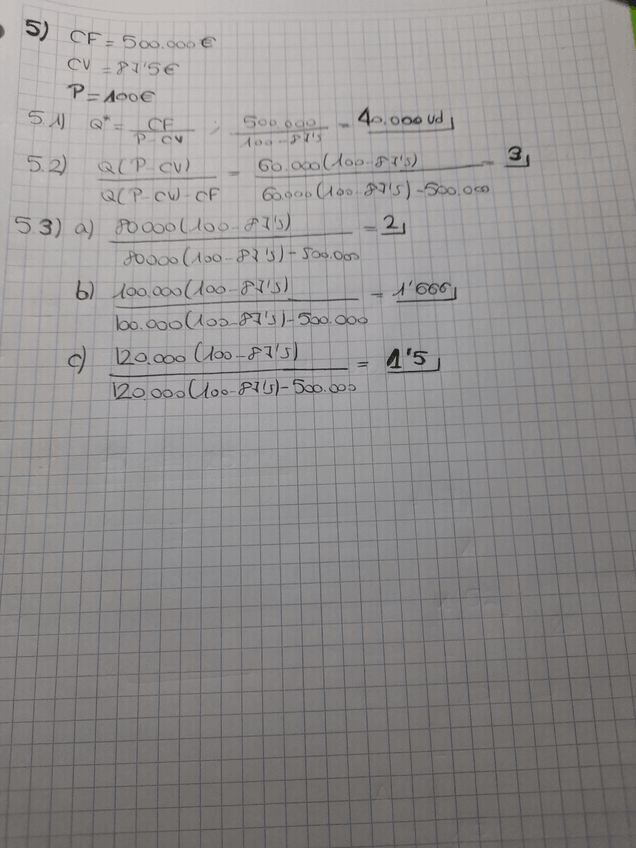 5) CF = 500.000€
CV = 87'5€
P = 100€
5.1) Q* = CF / P - CV ; 500.000 / 100 - 87's = 40.000 ud
5.2) Q(P - CV) / Q(P - CV) - CF = 60.000(100 - 87's) / 60.000(100 - 87's) - 500.000 = 3
5.3) a) 80000(100 - 87's) / 80000(100 - 87's) - 500.000 = 2
b) 100.000(100 - 87's) / 100.000(100 - 87's) - 500.000 = 1'666
c) 120.000(100 - 87's) / 120.000(100 - 87's) - 500.000 = 1'5